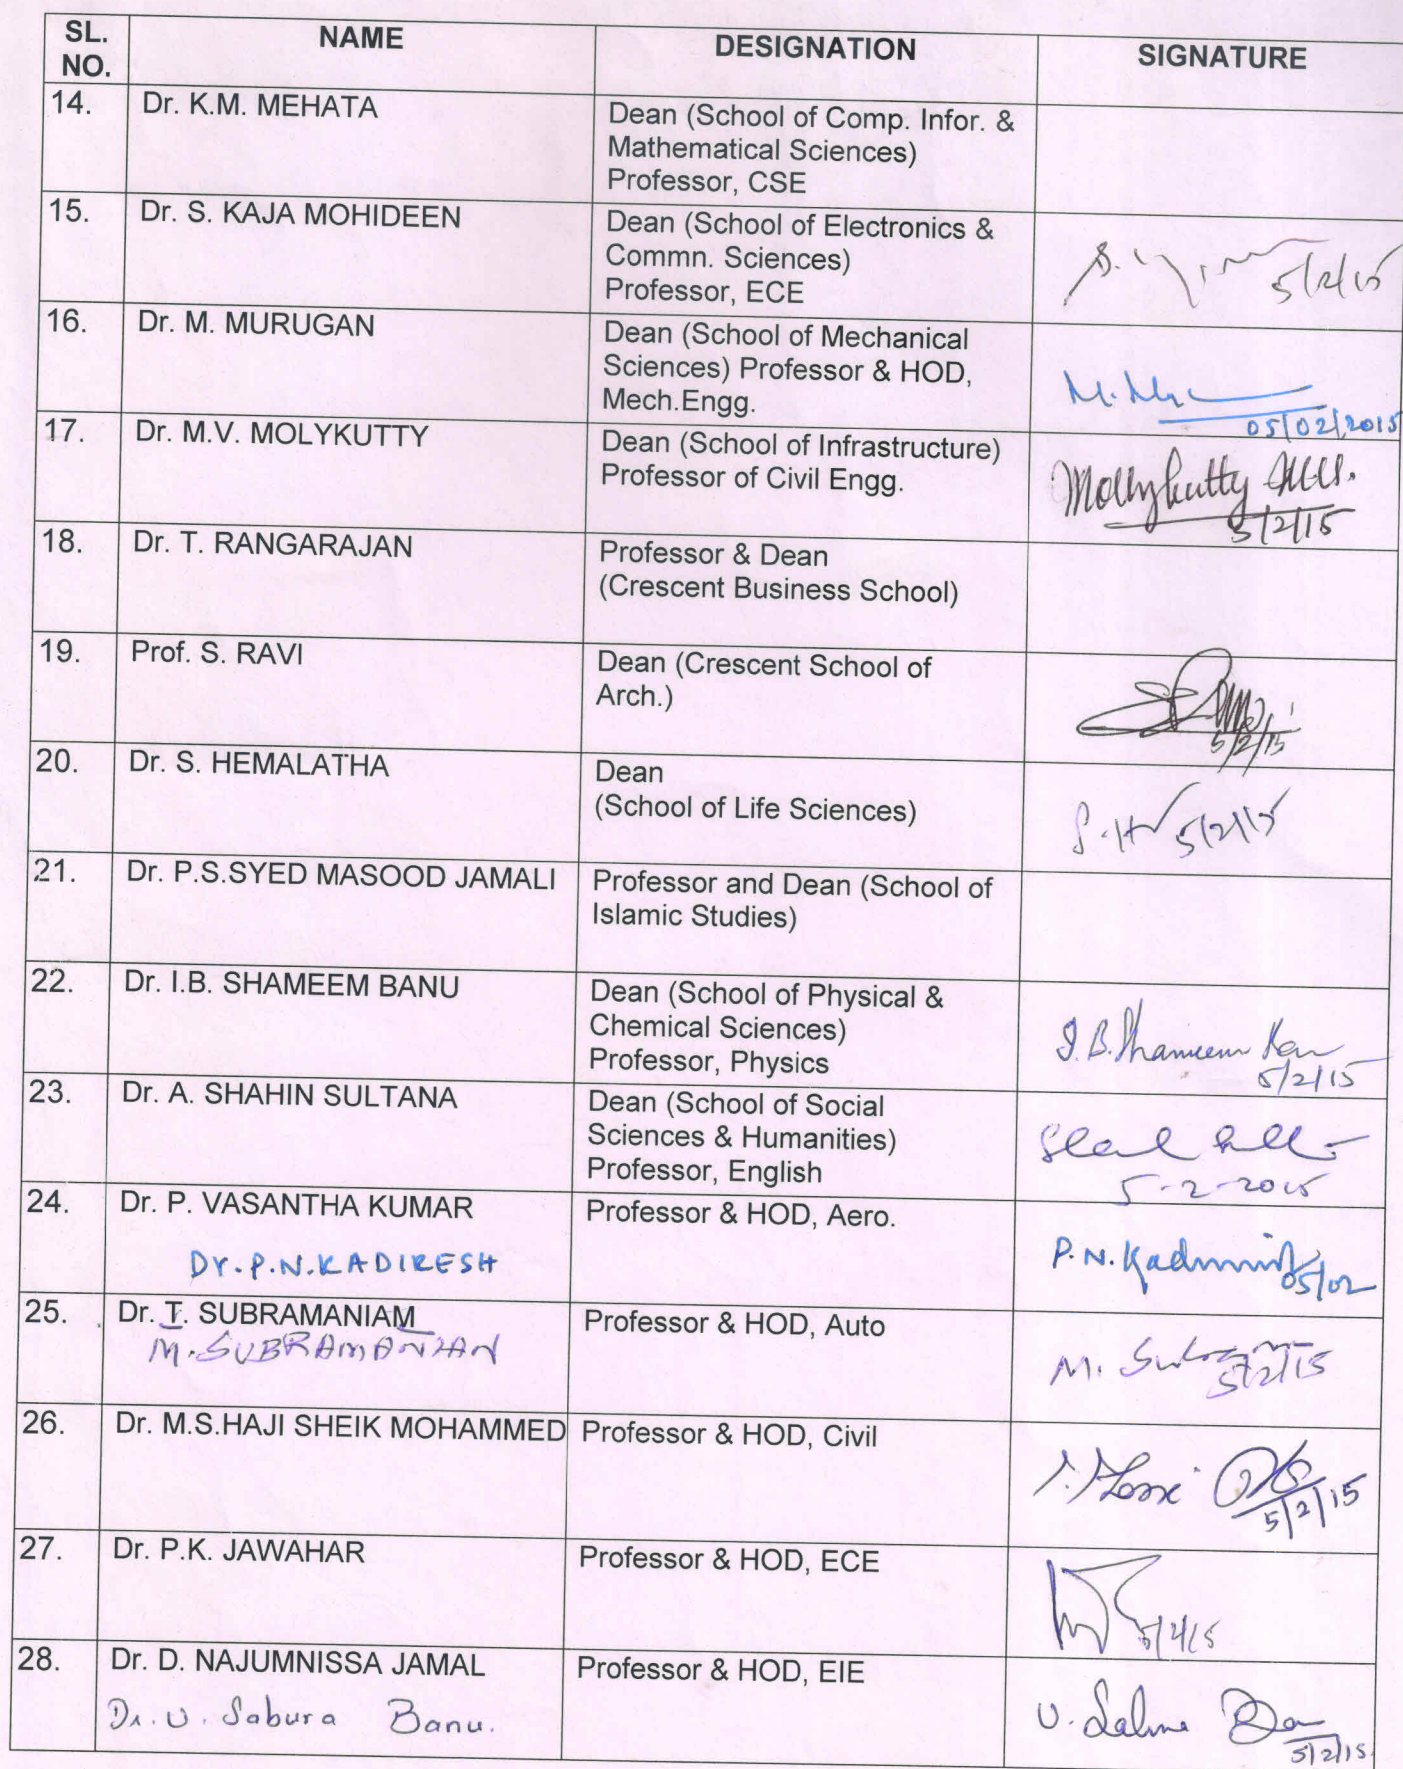 SL. NO. NAME DESIGNATION SIGNATURE
14. Dr. K.M. MEHATA Dean (School of Comp. Infor. &
Mathematical Sciences)
Professor, CSE
15. Dr. S. KAJA MOHIDEEN Dean (School of Electronics &
Commn. Sciences)
Professor, ECE
5/2/15
16. Dr. M. MURUGAN Dean (School of Mechanical
Sciences) Professor & HOD,
Mech.Engg.
05/02/2015
17. Dr. M.V. MOLYKUTTY Dean (School of Infrastructure)
Professor of Civil Engg.
Mollykutty M.V.
5/2/15
18. Dr. T. RANGARAJAN Professor & Dean
(Crescent Business School)
19. Prof. S. RAVI Dean (Crescent School of
Arch.)
5/2/15
20. Dr. S. HEMALATHA Dean
(School of Life Sciences)
5/2/15
21. Dr. P.S.SYED MASOOD JAMALI Professor and Dean (School of
Islamic Studies)
22. Dr. I.B. SHAMEEM BANU Dean (School of Physical &
Chemical Sciences)
Professor, Physics
I.B. Shameem
5/2/15
23. Dr. A. SHAHIN SULTANA Dean (School of Social
Sciences & Humanities)
Professor, English
5-2-2015
24. Dr. P. VASANTHA KUMAR Professor & HOD, Aero.
Dr. P.N. KADIRESH P.N. 05/02
25. Dr. T. SUBRAMANIAM Professor & HOD, Auto
M. SUBRAMANIAN M.
5/2/15
26. Dr. M.S.HAJI SHEIK MOHAMMED Professor & HOD, Civil
5/2/15
27. Dr. P.K. JAWAHAR Professor & HOD, ECE
5/2/15
28. Dr. D. NAJUMNISSA JAMAL Professor & HOD, EIE
Dr. U. Sabura Banu. U.
5/2/15